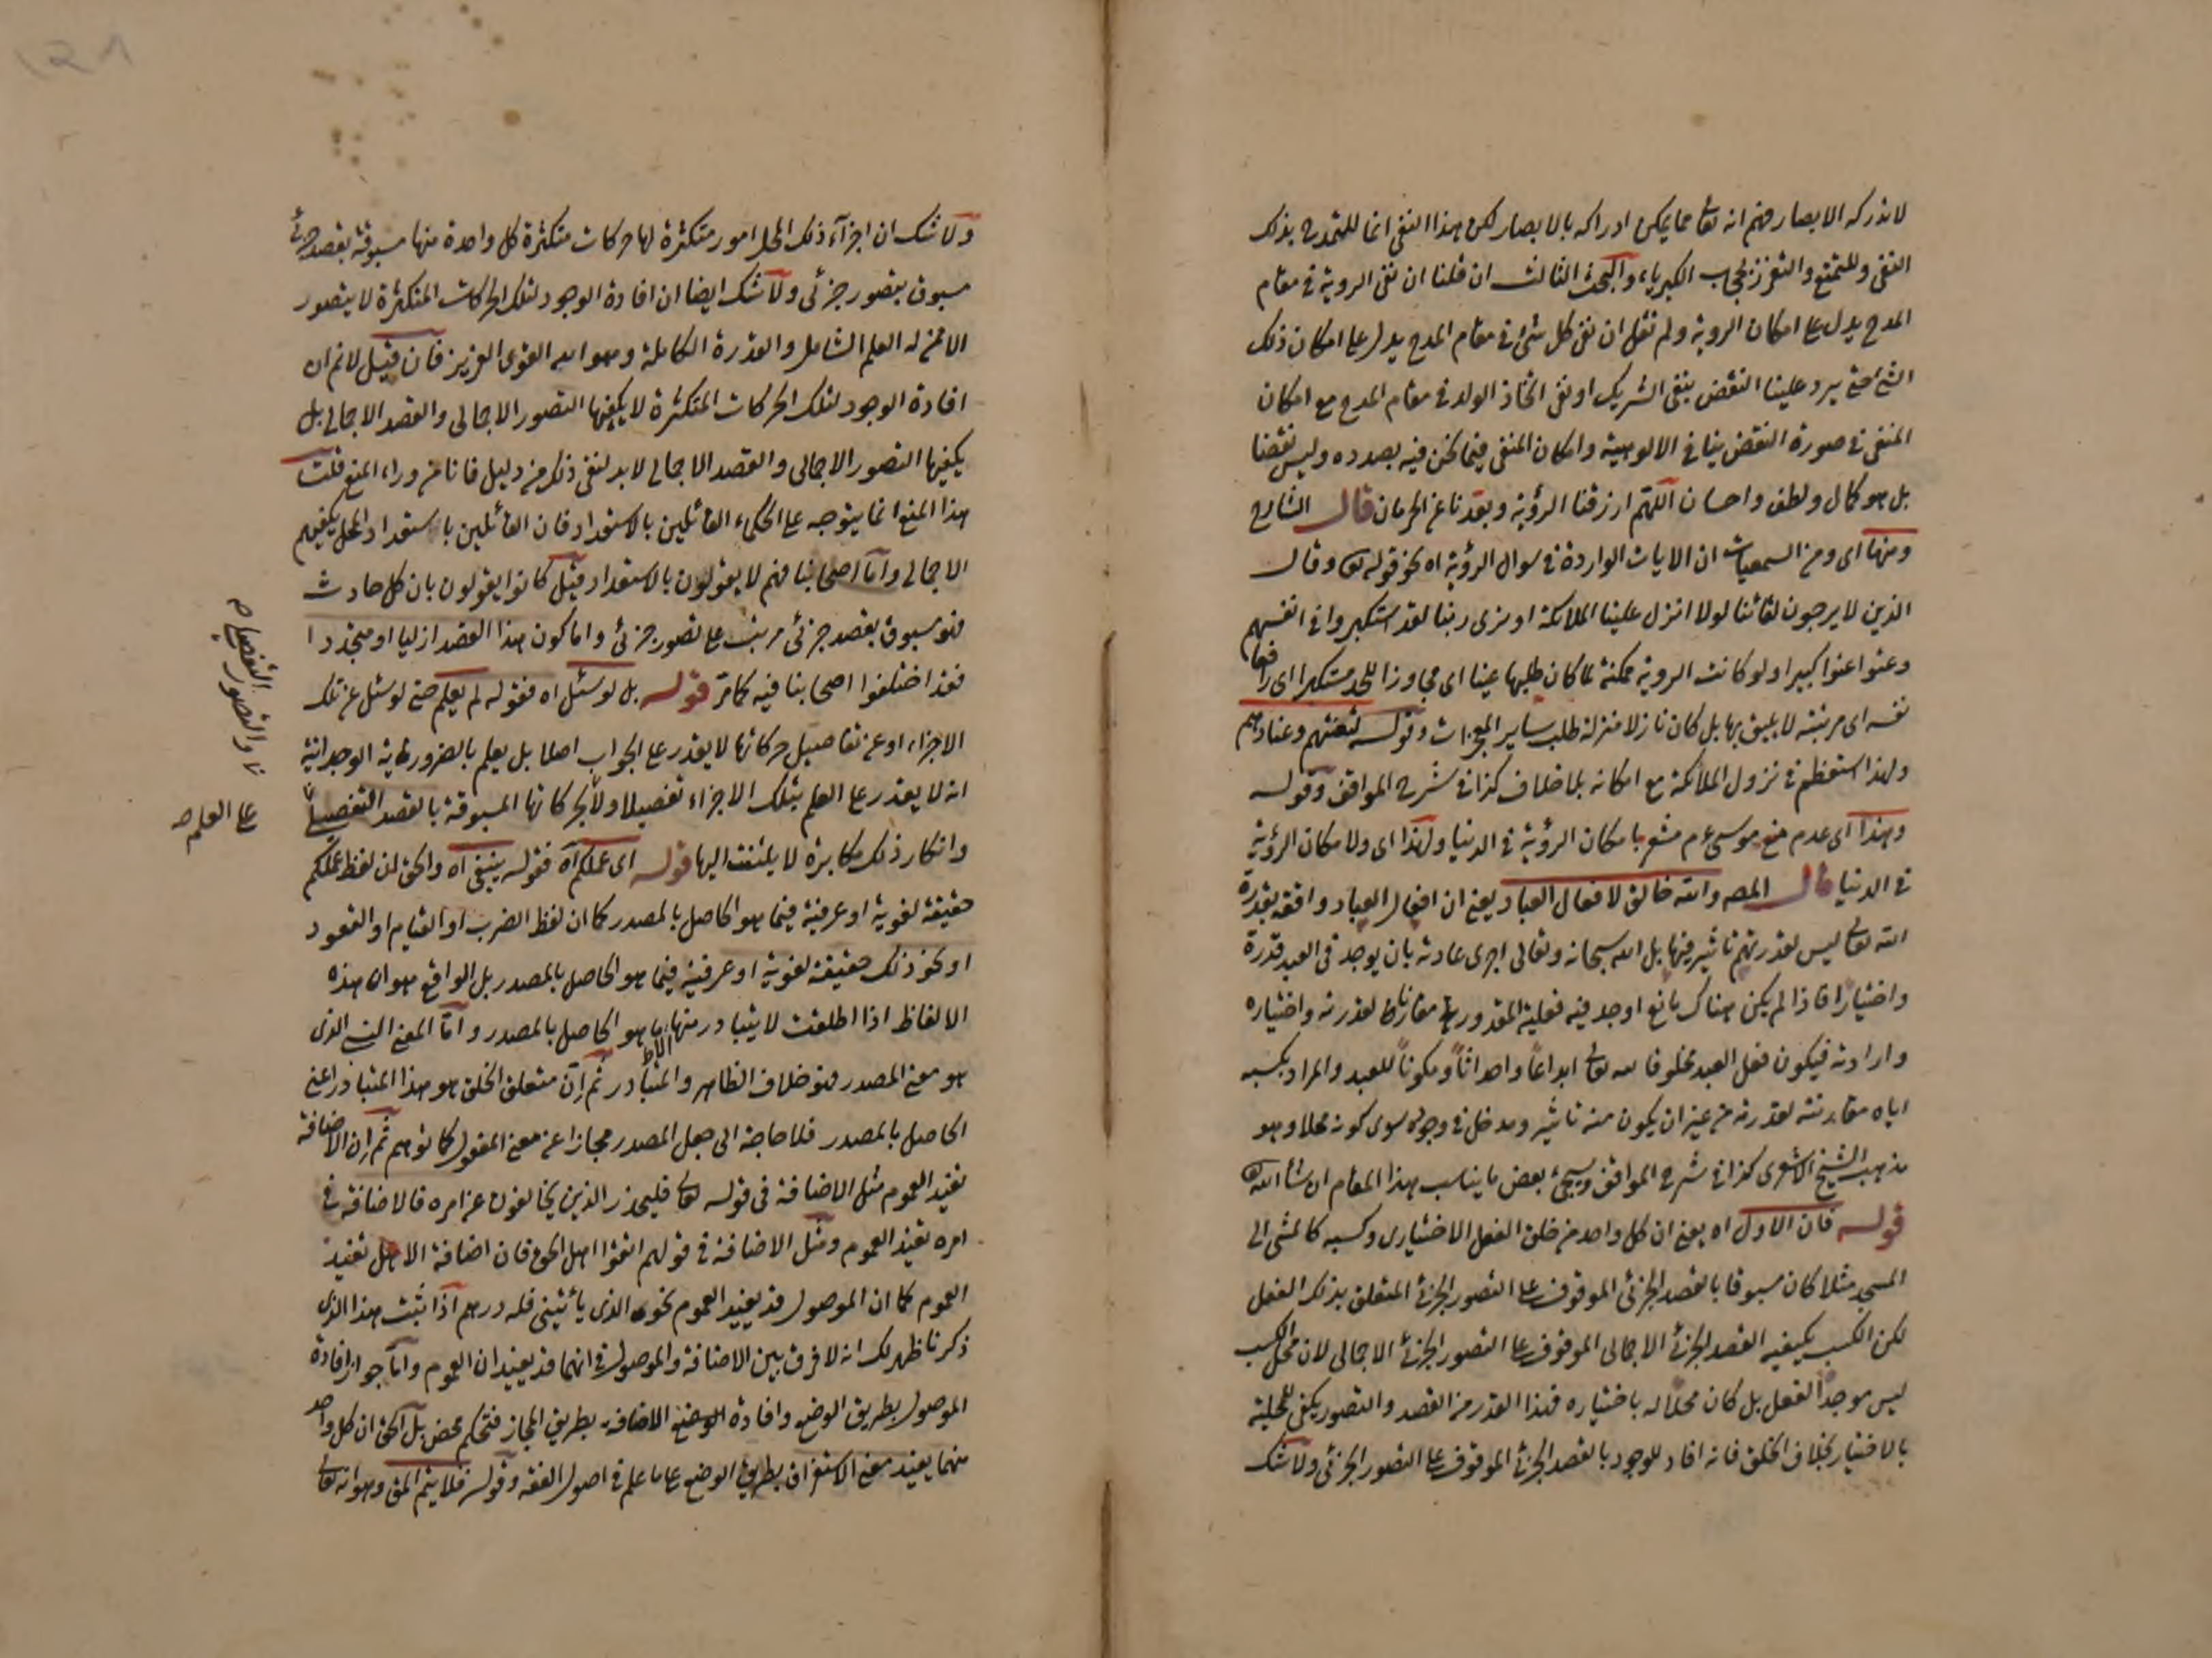 لا تدركه الابصار فهم انه تعا مما يمكن ادراكه بالابصار لكن هذا النفى انما للتمدح بذلك
النفى وللتمنع والتعزز بحجاب الكبرياء والبحث الثالث ان قلنا ان نفى الروية فى مقام
المدح يدل على امكان الروية ولم نقل ان نفى كل شئ فى مقام المدح يدل على امكان ذلك
الشئ حتى يرد علينا النقض بنفى الشريك او نفى اتخاذ الولد فى مقام المدح مع امكان
المنفى فى صورة النقض ينافى الالوهية وامكان المنفى فيما نحن فيه بصدده وليس نقضا
بل هو كمال ولطف واحسان اللهم ارزقنا الرؤية وبعدنا عن الحرمان قال الشارح
ومنها اى ومن السمعيات ان الايات الواردة فى سوال الرؤية اه نحو قوله تعا وقال
الذين لا يرجون لقائنا لولا انزل علينا الملائكة او نرى ربنا لقد استكبروا فى انفسهم
وعتوا عتوا كبيرا ولو كانت الروية ممكنة لما كان طلبها عتيا اى مجاوزا للحد مستكبرا اى رافعا
نفسه اى مرتبته لا يليق بها بل كان نازلا منزلة طلب ساير المعجزات وقوله لتعنتهم وعنادهم
ولهذا استعظم فى نزول الملائكة مع امكانه بلا خلاف كذا فى شرح المواقف وقوله
وهذا اى عدم منع موسى عم مشعر بامكان الرؤية فى الدنيا ولهذا اى ولامكان الرؤية
فى الدنيا قال المصه والله خالق لافعال العباد يعنى ان افعال العباد واقعة بقدرة
الله تعالى ليس لقدرتهم تأثير فيها بل الله سبحانه وتعالى اجرى عادته بان يوجد فى العبد قدرة
واختيارا فاذا لم يكن هناك مانع اوجد فيه فعله المقدور مقارنا لقدرته واختياره
وارادته فيكون فعل العبد مخلوقا لله تعالى ابداعاً واحداثاً ومكوناً للعبد والمراد بكسبه
اياه مقارنته لقدرته من غير ان يكون منه تأثير ومدخل فى وجوده سوى كونه محلا وهو
مذهب الشيخ الاشعرى كذا فى شرح المواقف وسيجئ بعض ما يناسب هذا المقام ان شأ الله تعا
قوله فان الاول اه يعنى ان كل واحد من خلق الفعل الاختيارى وكسبه كالمشى الى
المسجد مثلا كان مسبوقا بالقصد الجزئى الموقوف على التصور الجزئى المتعلق بذلك الفعل
لكن الكسب يكيفيه القصد الجزئى الاجمالى الموقوف على التصور الجزئى الاجمالى لان محل الكسب
ليس موجداً لفعل بل كان محلا له باختياره فهذا القدر من القصد والتصور يكفى للمحلية
بالاختيار بخلاف الخلق فانه افاد للوجود بالقصد الجزئى الموقوف على التصور الجزئى ولا شك
ولا شك ان اجزآء ذلك المحل امور متكثرة لها حركات متكثرة كل واحدة منها مسبوقة بقصد جزئى
مسبوق بتصور جزئى ولا شك ايضا ان افادة الوجود لتلك الحركات المتكثرة لا يتصور
الا ممن له العلم الشامل والقدرة الكاملة وهو الله القوى العزيز فان قيل لا نم ان
افادة الوجود لتلك الحركات المتكثرة لا يكفيها التصور الاجمالى والقصد الاجمالى بل
يكفيها التصور الاجمالى والقصد الاجمالى لا بد لنفى ذلك من دليل فانا من وراء المنع قلت
هذا المنع انما يتوجه على الحكماء القائلين بالاستعداد فان القائلين باستعداد المحل يكفيهم
الاجمالى وامّا اصحابنا فهم لا يقولون بالاستعداد قيل كانوا يقولون بان كل حادث
فهو مسبوق بقصد جزئى مرتب على تصور جزئى واما كون هذا القصد ازليا او متجددا
فقد اختلفوا اصحابنا فيه كما مرّ قوله بل لو سئل اه فقوله لم يعلم حتى لو سئل عن تلك
الاجزاء او عن تفاصيل حركاتها لا يقدر على الجواب اصلا بل يعلم بالضرورية الوجدانية
انه لا يقدر على العلم بتلك الاجزاء تفصيلا ولا بحركاتها المسبوقة بالقصد التفصيلى
وانكار ذلك مكابرة لا يلتفت اليها قوله اى عملكم آه فقوله ينبغى اه والحق ان لفظ عملكم
حقيقة لغوية او عرفية فيما هو الحاصل بالمصدر كما ان لفظ الضرب او القيام او القعود
او نحو ذلك حقيقة لغوية او عرفية فيما هو الحاصل بالمصدر بل الواقع هو ان هذه
الالفاظ اذا اطلقت لا يتبادر منها الا ما هو الحاصل بالمصدر وامّا المعنى النسبى الذى
هو معنى المصدر فهو خلاف الظاهر والمتبادر ثم انّ متعلق الخلق هو هذا المتبادر اعنى
الحاصل بالمصدر فلا حاجة الى جعل المصدر مجازا عن معنى المفعول كما توهم ثم ان الاضافة
تفيد العموم مثل الاضافة فى قوله تعالى فليحذر الذين يخالفون عن امره فالاضافة فى
امره تفيد العموم ومثل الاضافة فى قولهم اتقوا اهل الحق فان اضافة الاهل تفيد
العموم كما ان الموصول قد يفيد العموم نحو الذى يأتينى فله درهم اذا ثبت هذا الذى
ذكرنا ظهر لك انه لا فرق بين الاضافة والموصول فى انهما قد يفيدان العموم وامّا جواز افادة
الموصول بطريق الوضع وافادة الاضافة بطريق المجاز فتحكم محض بل الحق ان كل واحد
منهما يفيد معنى الاستغراق بطريق الوضع على ما علم فى اصول الفقه وقوله فلا يتم المق وهو انه تعالى
والتصور التفصيلى
على العلم